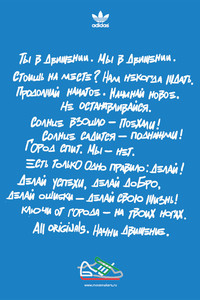 adidas
Ты в Движении. Мы в Движении.
Стоишь на месте? Нам некогда ждать.
Продолжай начатое. Начинай новое.
Не останавливайся.
Солнце взошло — Поехали!
Солнце садится — поднажми!
Город спит. Мы — нет.
Есть только одно правило: делай!
Делай успехи, делай добро,
делай ошибки — делай свою жизнь!
Ключи от города — на твоих ногах.
All originals. Начни Движение.